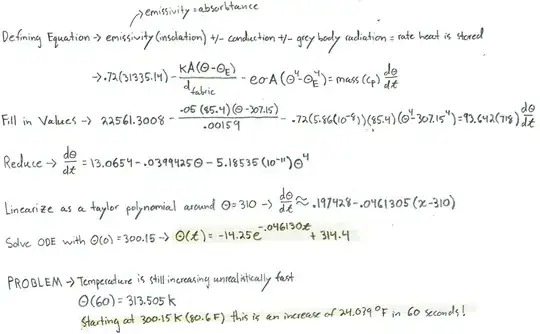 emissivity = absorbtance
Defining Equation → emissivity (insolation) +/- conduction +/- grey body radiation = rate heat is stored
→ .72(31335.14) - KA(θ-θ_E)/d_fabric - eσA(θ⁴-θ_E⁴) = mass(Cp) dθ/dt
Fill in Values → 22561.3008 - .05(85.4)(θ-307.15)/.00159 - .72(5.86(10⁻⁸))(85.4)(θ⁴-307.15⁴) = 93.642(718) dθ/dt
Reduce → dθ/dt = 13.0654 - .0399425θ - 5.18535(10⁻¹¹)θ⁴
Linearize as a taylor polynomial around θ=310 → dθ/dt ≈ .197428 - .0461305(x-310)
Solve ODE with θ(0) = 300.15 → θ(t) = -14.25e^(-.046130t) + 314.4
PROBLEM → Temperature is still increasing unrealistically fast
θ(60) = 313.505 K
Starting at 300.15 K (80.6 F) this is an increase of 24.079 °F in 60 seconds!